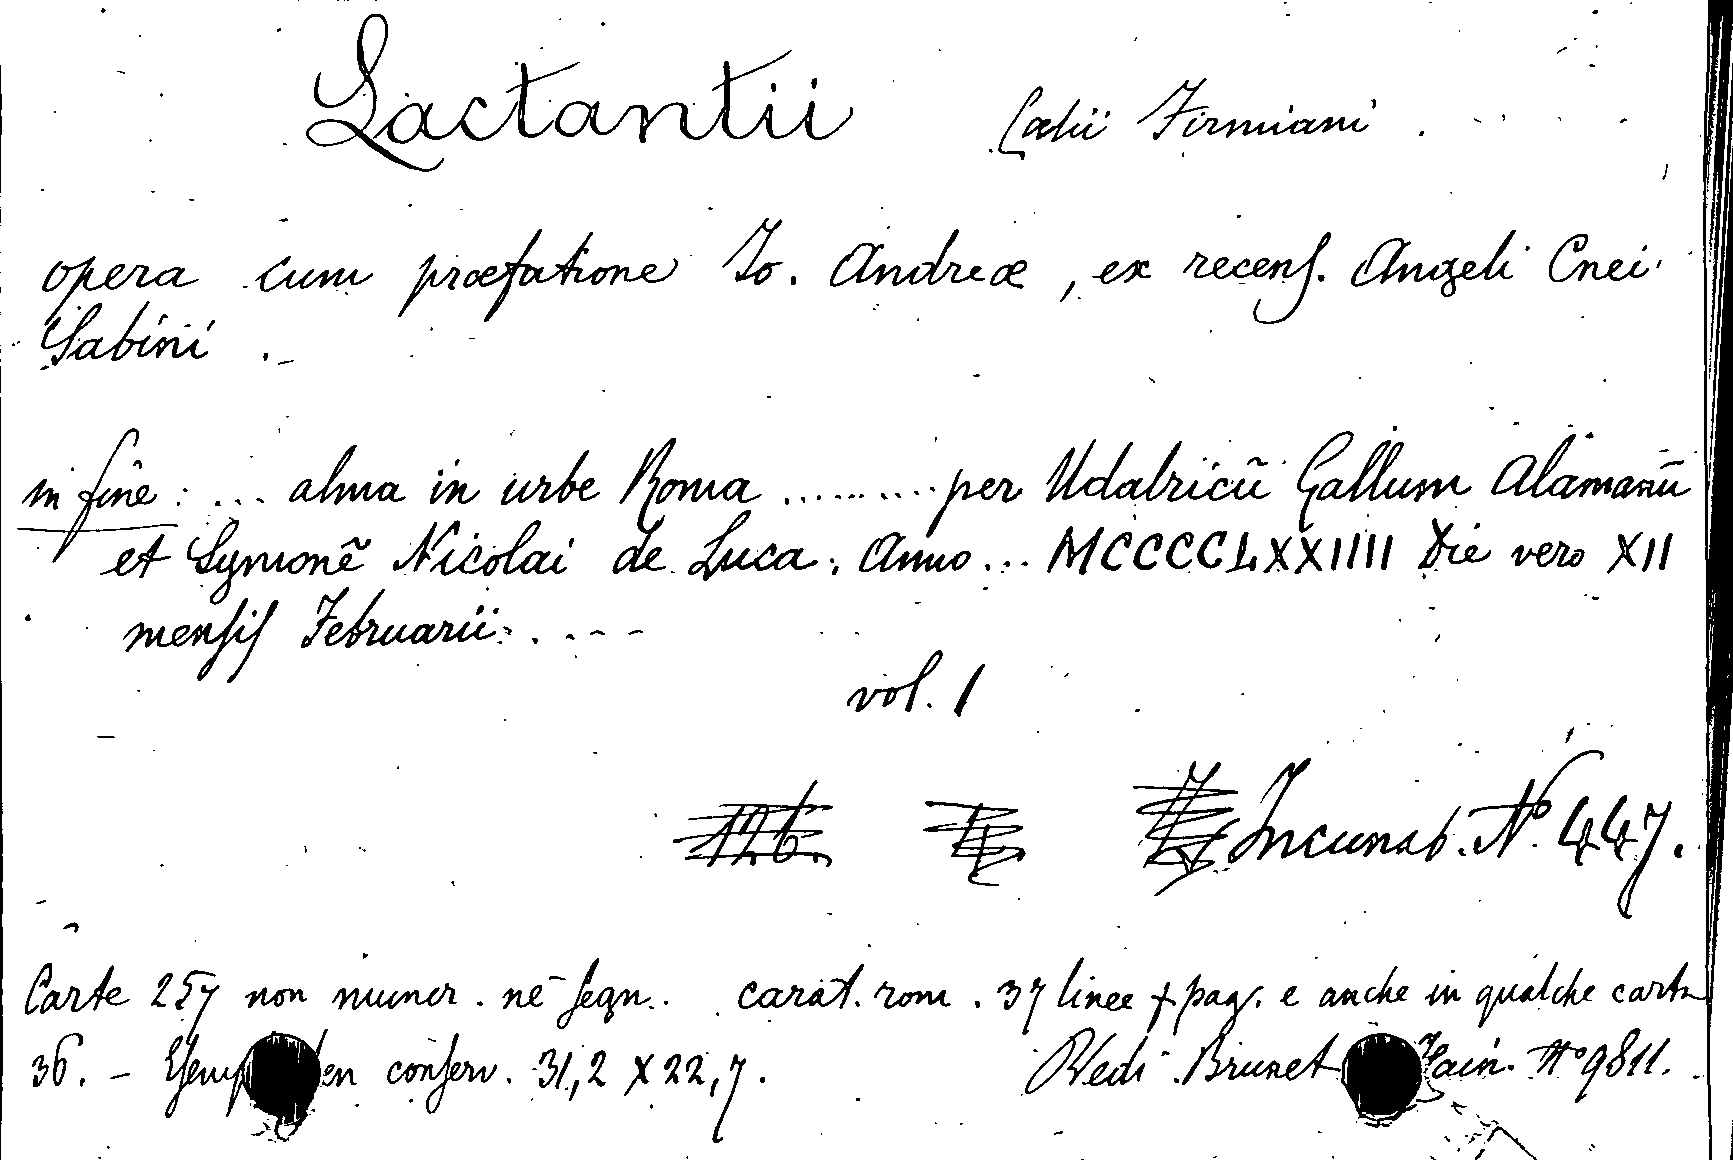 Lactantii Calii Firmiani .
opera cum præfatione Io. Andreæ, ex recens. Angeli Cnei
Sabini .
in fine : ... alma in urbe Roma .......... per Udalricū Gallum Alamanū
et Symonē Nicolai de Luca : Anno ... MCCCCLXXIIII Die vero XII
mensis Februarii . . - - -
vol. 1
126. 4 Incunab. Nº 447.
Carte 257 non numer. nè segn. carat. rom. 37 linee p pag. e anche in qualche carta
36. - Esemp en conserv. 31,2 X 22,7. Vedi Brunet Hain. Nº 9811.